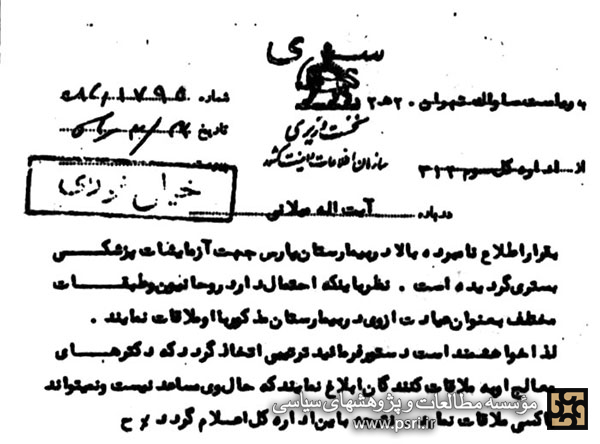 سری
به ریاست ساواک تهران ۲۰ ه ۲
شماره
نخست وزیری
تاریخ
سازمان اطلاعات و امنیت کشور
از اداره کل سوم ۳۱۲
خیلی فوری
درباره آیت اله میلانی
بقرار اطلاع نامبرده بالا در بیمارستان پارس جهت آزمایشات پزشکی
بستری گردیده است . نظر باینکه احتمال دارد روحانیون و طبقات
مختلف بعنوان عیادت از وی در بیمارستان مذکور با او ملاقات نمایند .
لذا خواهشمند است دستور فرمائید ترتیبی اتخاذ گردد که دکترهای
معالج او به ملاقات کنندگان ابلاغ نمایند که حال وی مساعد نیست و نمیتواند
با کسی ملاقات نماید باین اداره کل اعلام گردد
مؤسسه مطالعات و پژوهشهای سیاسی
www.psri.ir